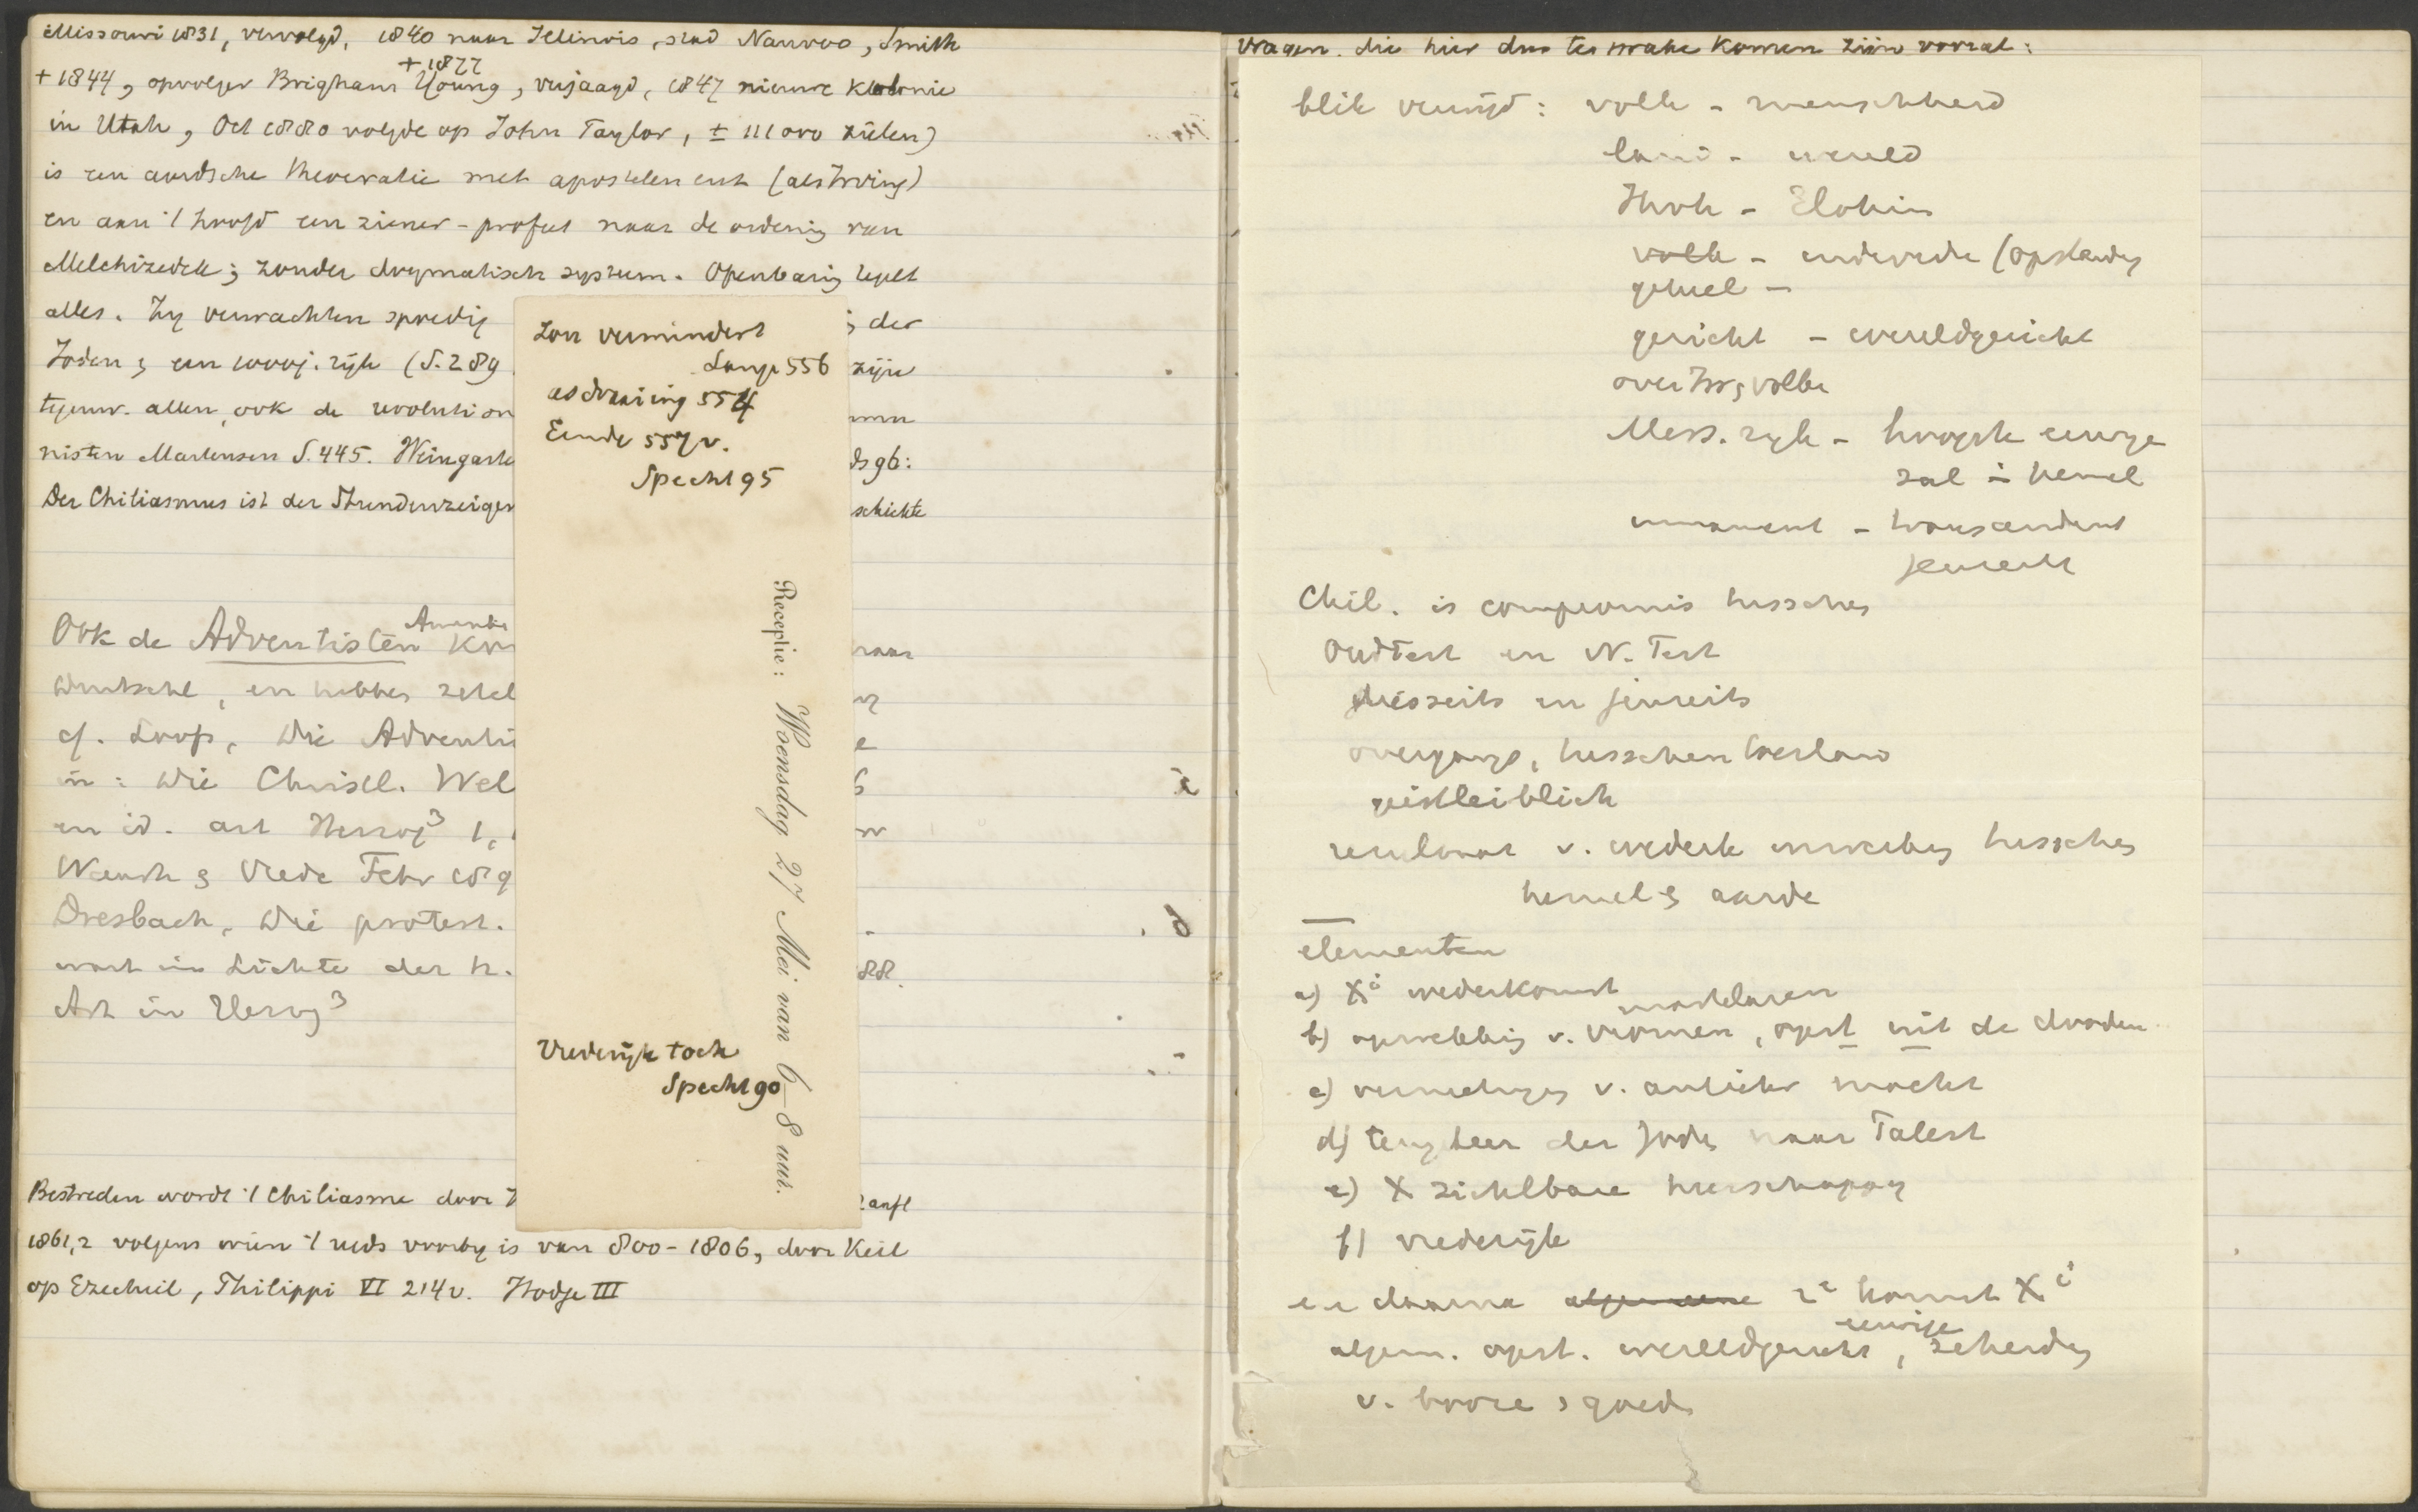 Missouri 1831, vervolgd, 1840 naar Illinois, stad Nauvoo, Smith
+ 1877
+ 1844, opvolger Brigham Young, verjaagd, 1847 nieuwe kolonie
in Utah, Oct 1880 volgde op John Taylor, ± 111000 zielen)
is een aardsche theocratie met apostelen enz (als Irving)
en aan 't hoofd een ziener-profeet naar de ordening van
Melchizedek; zonder dogmatisch systeem. Openbaring
alles. Zy verwachten spoedig der
Joden, een 1000j. rijk (S. 289 zijn
tegenw. allen, ook de revolution
nisten Martensen S. 445. Weingarte dsgb:
Der Chiliasmus ist der Stundenzeiger schichte
Ook de Adventisten naar
en hebben
cf. Loofs, Die Adventi
in: Die Christl. Wel
en id. art Herzog³ 1,
Vrede Febr 189
Dresbach, Die protest.
im Lichte der h. 88.
Art in Herzog³
Bestreden wordt 't Chiliasme door anft
1861,2 volgens wien 't reeds voorby is van 800-1806, door Keil
op Ezechiel, Philippi VI 214v. Hodge III
Zon vermindert
Lange 556
asdraaiing 554
Einde 557v.
Specht 95
Receptie: Woensdag 27 Mei van 6-8 uur.
Vrederijk toch
Specht 90
Vragen, die hier dus ter sprake komen zijn vooral:
blik verruijd: volk - menschheid
land - wereld
Jhvh - Elohim
volk - individu (opstanding
geheel -
gericht - wereldgericht
over Isr, volken
Mess. ryk - hoogste eeuwige
zal in hemel
immanent - transcendent
jenseits
Chil. is compromis tusschen
Oud Test en N. Test
diesseits en jenseits
overgangs, tusschentoestand
geistleiblich
v. wederk. inwerking tusschen
hemel & aarde
elementen
a) Xⁱ wederkomst
martelaren
b) opwekking v. vromen, opst uit de dooden
c) vernietiging v. antichr macht
d) terugkeer der Joden naar Palest
e) X zichtbare heerschappy
f) vrederijk
en daarna algemeene 2e komst Xⁱ
eeuwige
algem. opst. wereldgericht, scheiding
v. booze & goede